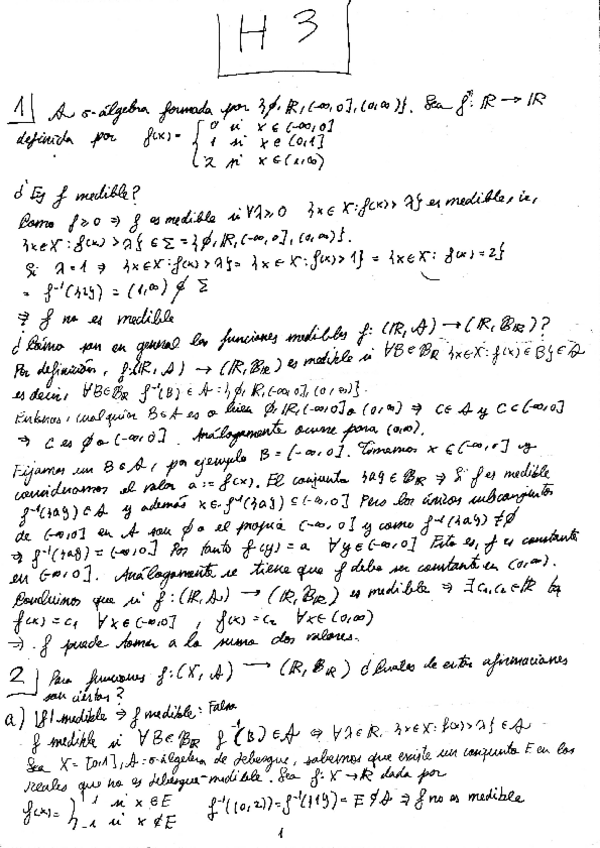 H 3
1| A σ-álgebra formada por {∅, ℝ, (-∞,0], (0,∞)}. Sea f: ℝ → ℝ
definida por f(x) = { 0 si x ∈ (-∞,0]
1 si x ∈ (0,1]
2 si x ∈ (1,∞)
¿Es f medible?
Como f ≥ 0 ⇒ f es medible si ∀λ ≥ 0 {x ∈ X : f(x) > λ} es medible, ie,
{x ∈ X : f(x) > λ} ∈ Σ = {∅, ℝ, (-∞,0], (0,∞)}.
Si λ = 1 ⇒ {x ∈ X : f(x) > λ} = {x ∈ X : f(x) > 1} = {x ∈ X : f(x) = 2}
= f⁻¹({2}) = (1,∞) ∉ Σ
⇒ f no es medible
¿Cómo son en general las funciones medibles f: (ℝ, A) → (ℝ, B_ℝ)?
Por definición, f: (ℝ, A) → (ℝ, B_ℝ) es medible si ∀B ∈ B_ℝ {x ∈ X : f(x) ∈ B} ∈ A
es decir, ∀B ∈ B_ℝ f⁻¹(B) ∈ A = {∅, ℝ, (-∞,0], (0,∞)}.
Entonces, cualquier B ∈ A es o bien ∅, ℝ, (-∞,0] o (0,∞) ⇒ C ∈ A y C ⊂ (-∞,0]
⇒ C es ∅ o (-∞,0]. Análogamente ocurre para (0,∞).
Fijamos un B ∈ A, por ejemplo B = (-∞,0]. Tomamos x ∈ (-∞,0] y
consideramos el valor a := f(x). El conjunto {a} ∈ B_ℝ ⇒ Si f es medible
f⁻¹({a}) ∈ A y además x ∈ f⁻¹({a}) ⊆ (-∞,0] Pero los únicos subconjuntos
de (-∞,0] en A son ∅ o el propio (-∞,0] y como f⁻¹({a}) ≠ ∅
⇒ f⁻¹({a}) = (-∞,0] Por tanto f(y) = a ∀y ∈ (-∞,0] Esto es, f es constante
en (-∞,0]. Análogamente se tiene que f debe ser constante en (0,∞).
Concluimos que si f: (ℝ, A) → (ℝ, B_ℝ) es medible ⇒ ∃ c₁, c₂ ∈ ℝ tq
f(x) = c₁ ∀x ∈ (-∞,0], f(x) = c₂ ∀x ∈ (0,∞)
⇒ f puede tomar a lo sumo dos valores.
2| Para funciones f: (X, A) → (ℝ, B_ℝ) ¿Cuáles de estas afirmaciones
son ciertas?
a) |f| medible ⇒ f medible: Falsa
f medible si ∀B ∈ B_ℝ f⁻¹(B) ∈ A ⇔ ∀λ ∈ ℝ, {x ∈ X : f(x) > λ} ∈ A
Sea X = [0,1], A = σ-álgebra de Lebesgue, sabemos que existe un conjunto E en los
reales que no es Lebesgue-medible. Sea f: X → ℝ dada por
f(x) = { 1 si x ∈ E f⁻¹((0,2)) = f⁻¹({1}) = E ∉ A ⇒ f no es medible
-1 si x ∉ E
1